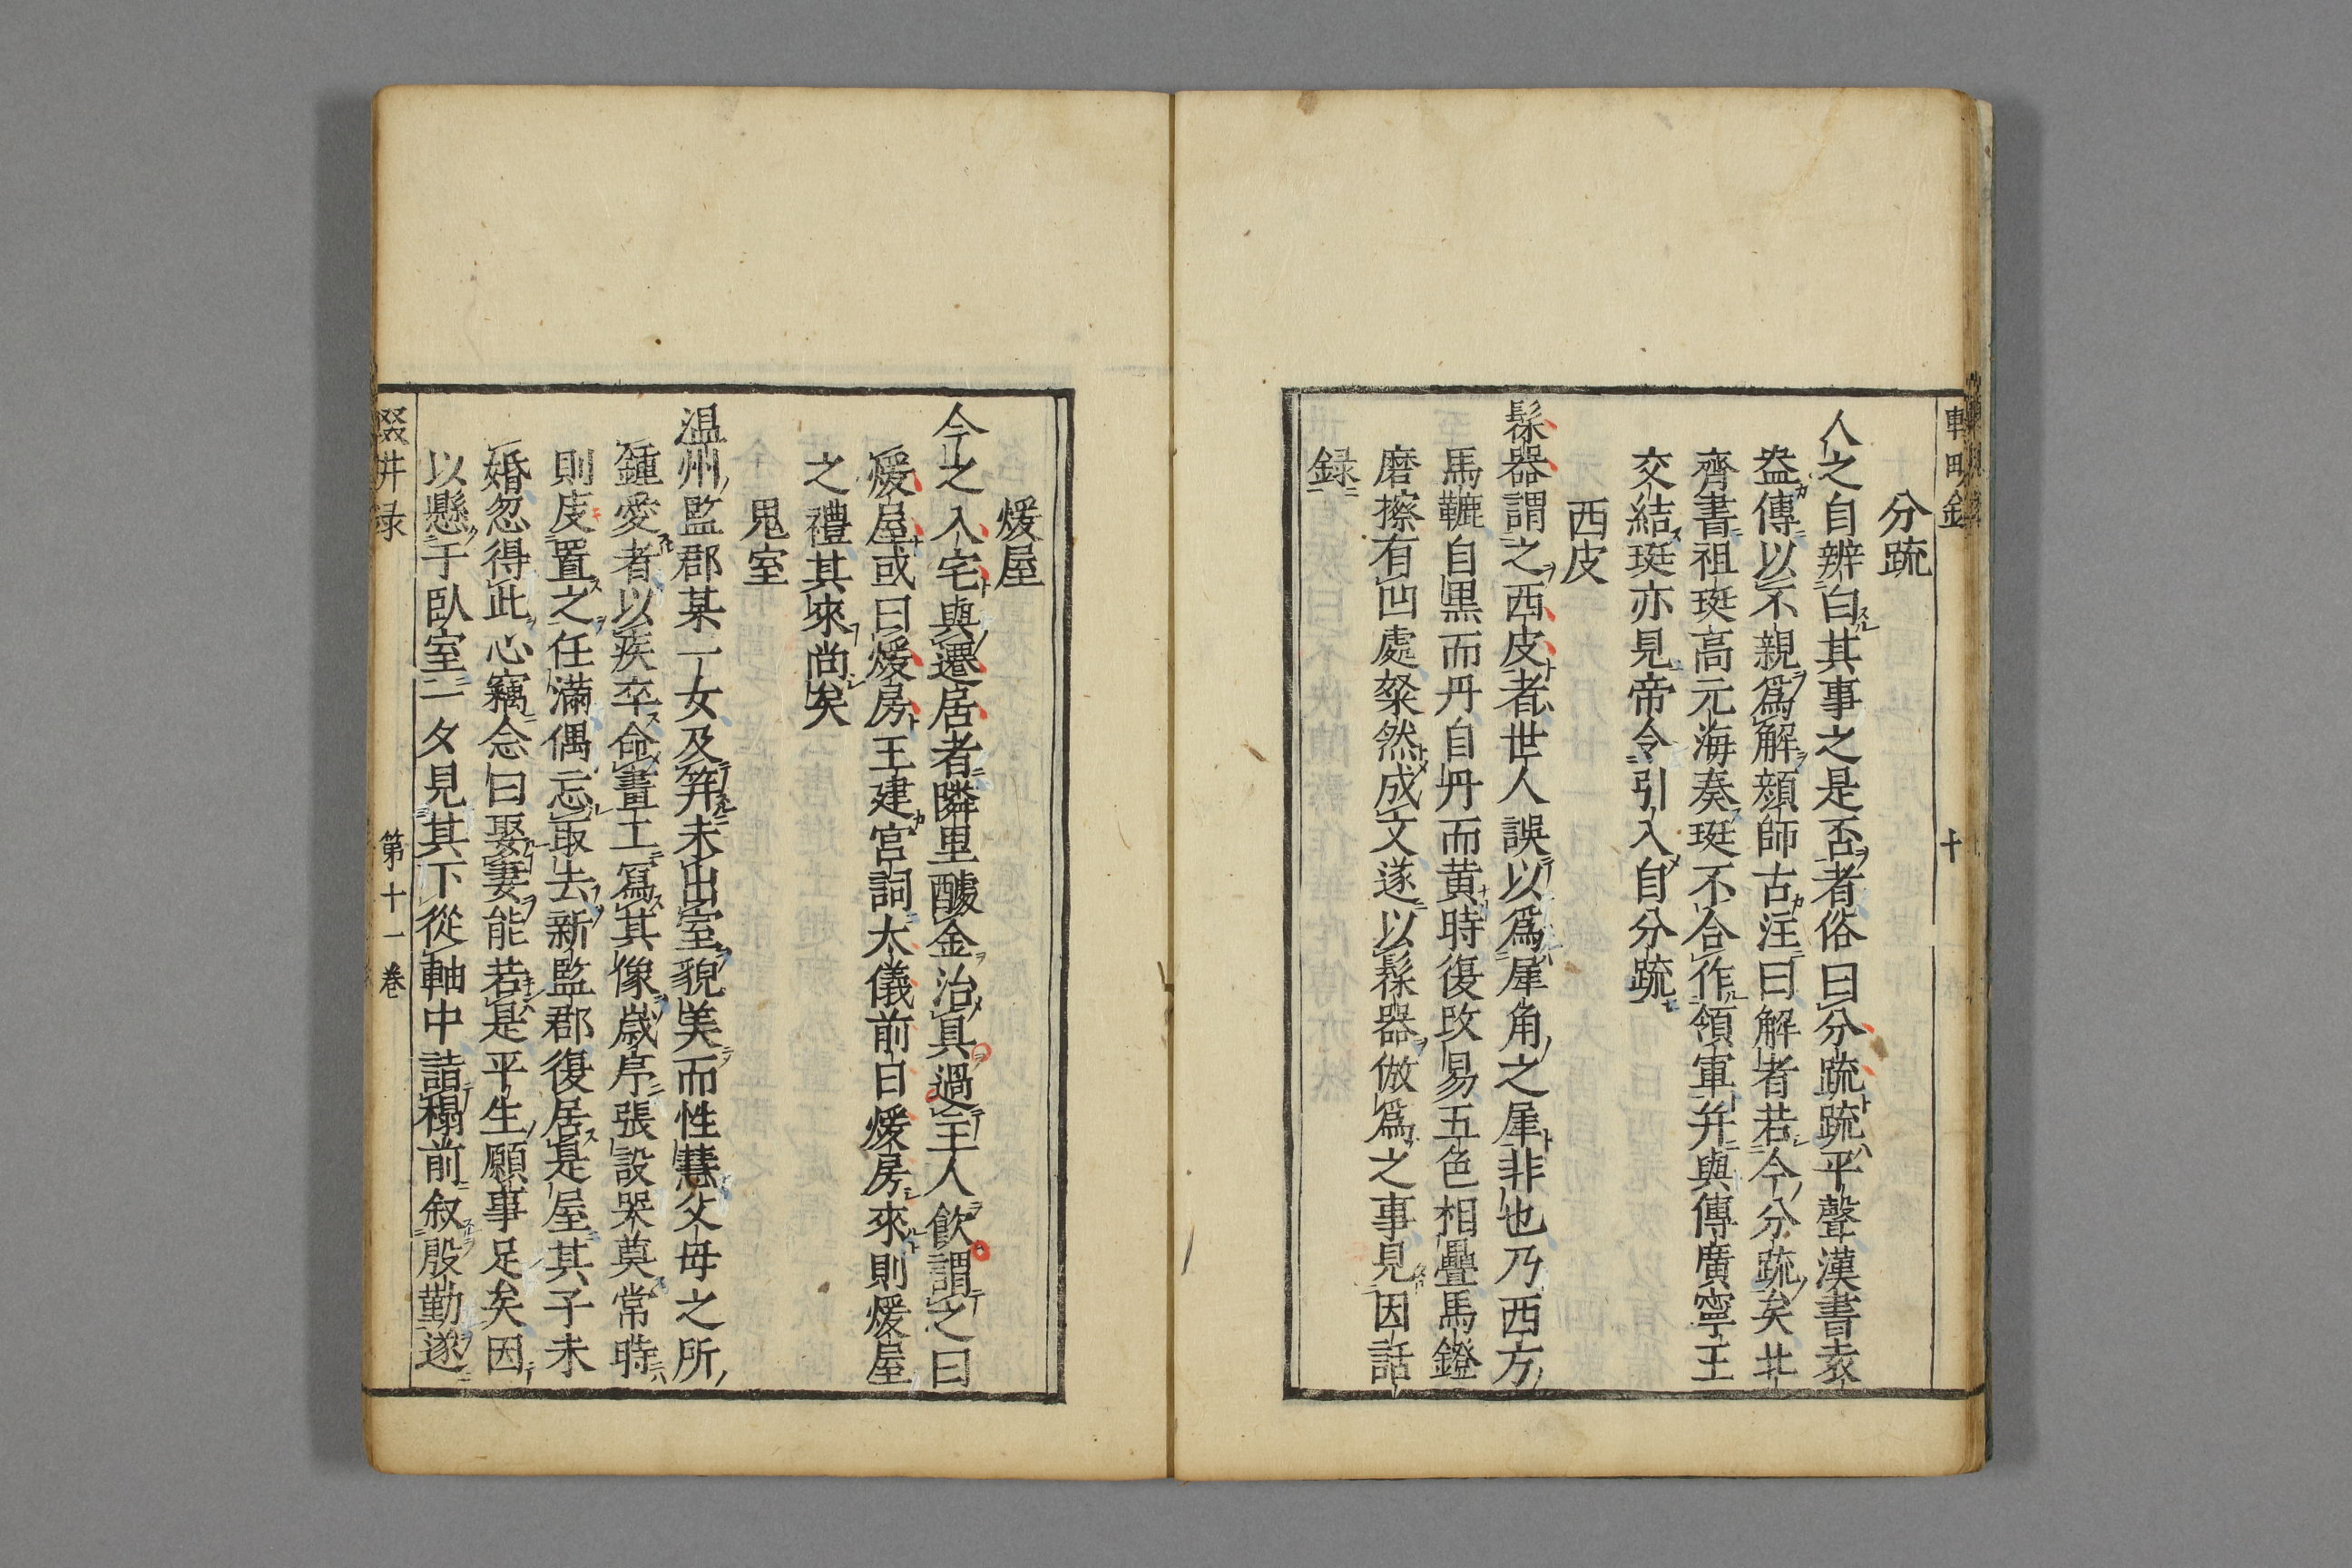 分疏
人之自辨白其事之是否者俗曰分疏疏平聲漢書袁
盎傳以不親爲解顏師古注曰解者若今分疏矣北
齊書祖珽高元海奏珽不合作領軍幷與傳廣寧王
交結珽亦見帝令引入自分疏
西皮
髹器謂之西皮者世人誤以爲犀角之犀非也乃西方
馬韉自黒而丹自丹而黄時復改易五色相疊馬鐙
磨擦有凹處粲然成文遂以髹器倣爲之事見因話
録
煖屋
今之入宅與遷居者隣里醵金治具過主人飲謂之曰
煖屋或曰煖房王建宮詞太儀前日煖房來則煖屋
之禮其來尚矣
鬼室
温州監郡某一女及筓未出室貌美而性慧父母之所
鍾愛者以疾卒命畫工寫其像歳序張設哭奠常時
則庋置之任滿偶忘取去新監郡復居是屋其子未
婚忽得此心竊念曰娶妻能若是平生願事足矣因
以懸于臥室一夕見其下從軸中詣榻前叙殷勤遂
第十一卷
十